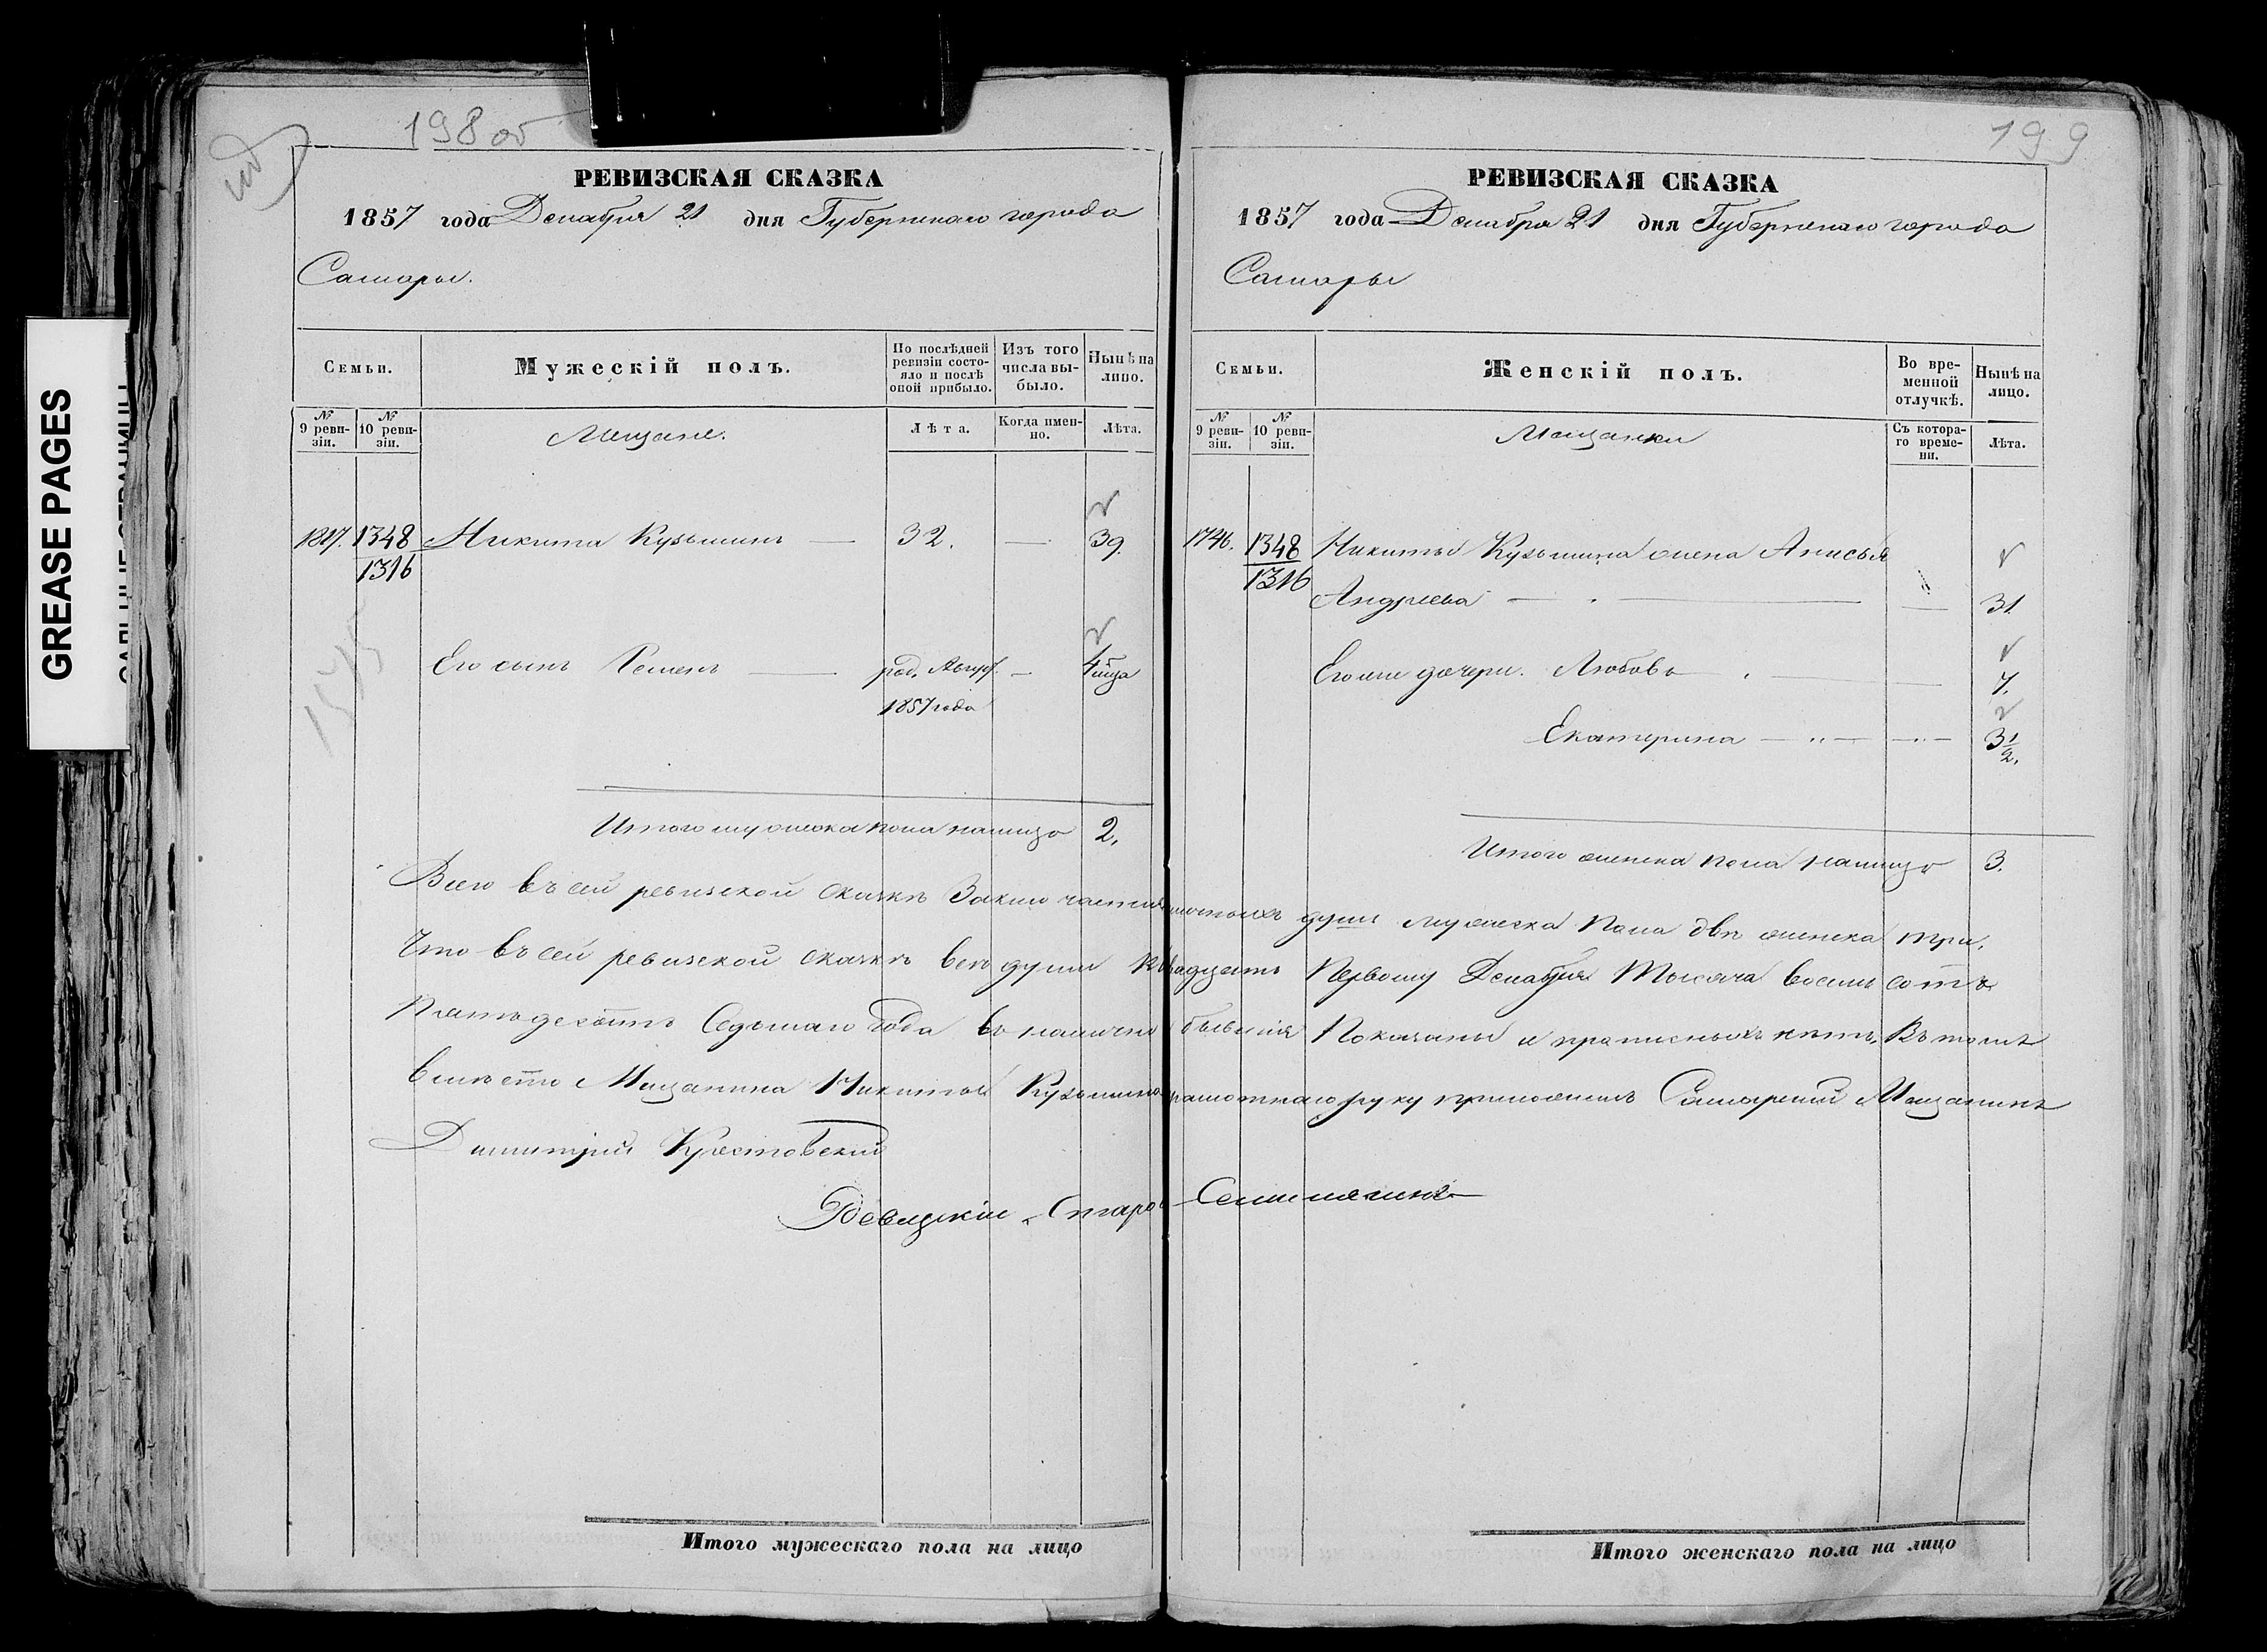 GREASE PAGES
198 об
РЕВИЗСКАЯ СКАЗКА
1857 года Декабря 21 дня Губернскаго города
Самары.
Семьи.
Мужескій полъ.
По послѣдней ревизіи состояло и послѣ оной прибыло.
Изъ того числа выбыло.
Нынѣ на лицо.
№ 9 ревизіи.
№ 10 ревизіи.
Мещане.
Лѣта.
Когда именно.
Лѣта.
1348 Никита Кузьминъ — 32. — 39.
1316
Его сынъ Семенъ — род. Август. — 4 м-ца
1857 года
Итого мужеска пола налицо 2.
199
РЕВИЗСКАЯ СКАЗКА
1857 года Декабря 21 дня Губернскаго города
Самары
Семьи.
Женскій полъ.
Во временной отлучкѣ.
Нынѣ на лицо.
№ 9 ревизіи.
№ 10 ревизіи.
Мещанки
Съ котораго времени.
Лѣта.
1746. 1348 Никиты Кузьмина жена Анисья
1316 Андреева — — 31.
Его же дочери. Любовь — 7.
Екатерина — 3 1/2.
Итого женска пола налицо 3.
Всего въ сей ревизской сказкѣ душъ мужеска пола двѣ женска три.
Что въ сей ревизской сказкѣ всѣ души Первому Декабря Тысяча восемь сотъ
Пятьдесятъ Седьмаго года въ бывшія Показаны и прописныхъ нѣтъ, Въ томъ
вмѣсто Мещанина Никиты Кузьмина руку приложилъ Самарскій Мещанинъ
Димитрій Крестовскій
Итого мужескаго пола на лицо
Итого женскаго пола на лицо